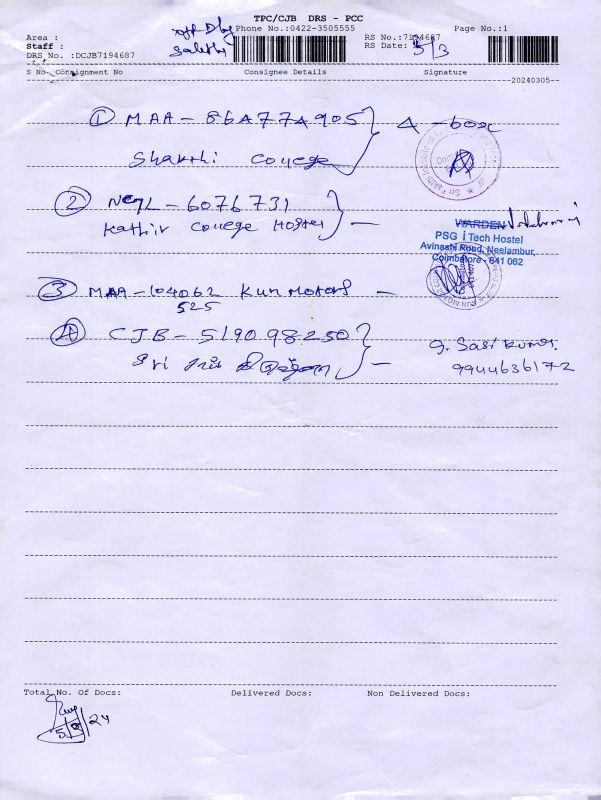 TPC/CJB DRS - PCC
Phone No.:0422-3505555 Page No.:1
Area :
RS No.:7194687
Staff :
RS Date: 5/3
DRS No. :DCJB7194687
S No Consignment No Consignee Details Signature
20240305
① MAA - 86A774905 4 - box
Shakthi College
② NCYL - 6076731
Kathir College Hostel
WARDEN
PSG iTech Hostel
Avinashi Road, Neelambur,
Coimbatore - 641 062
③ MAA - 104062 KUN MOTORS
525
④ CJB - 519098250
Sri
G. Sasi Kumar
9944636172
Total No. Of Docs: Delivered Docs: Non Delivered Docs: